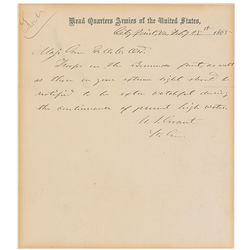 Head Quarters Armies of the United States,
City Point, Va. Feby 15th 1865
Maj. Gen.
Troops on the Bermuda front as well
as those on your extreme right should be
notified to be extra watchful during
the continuance of present high water.
U. S. Grant
Lt. Gen.